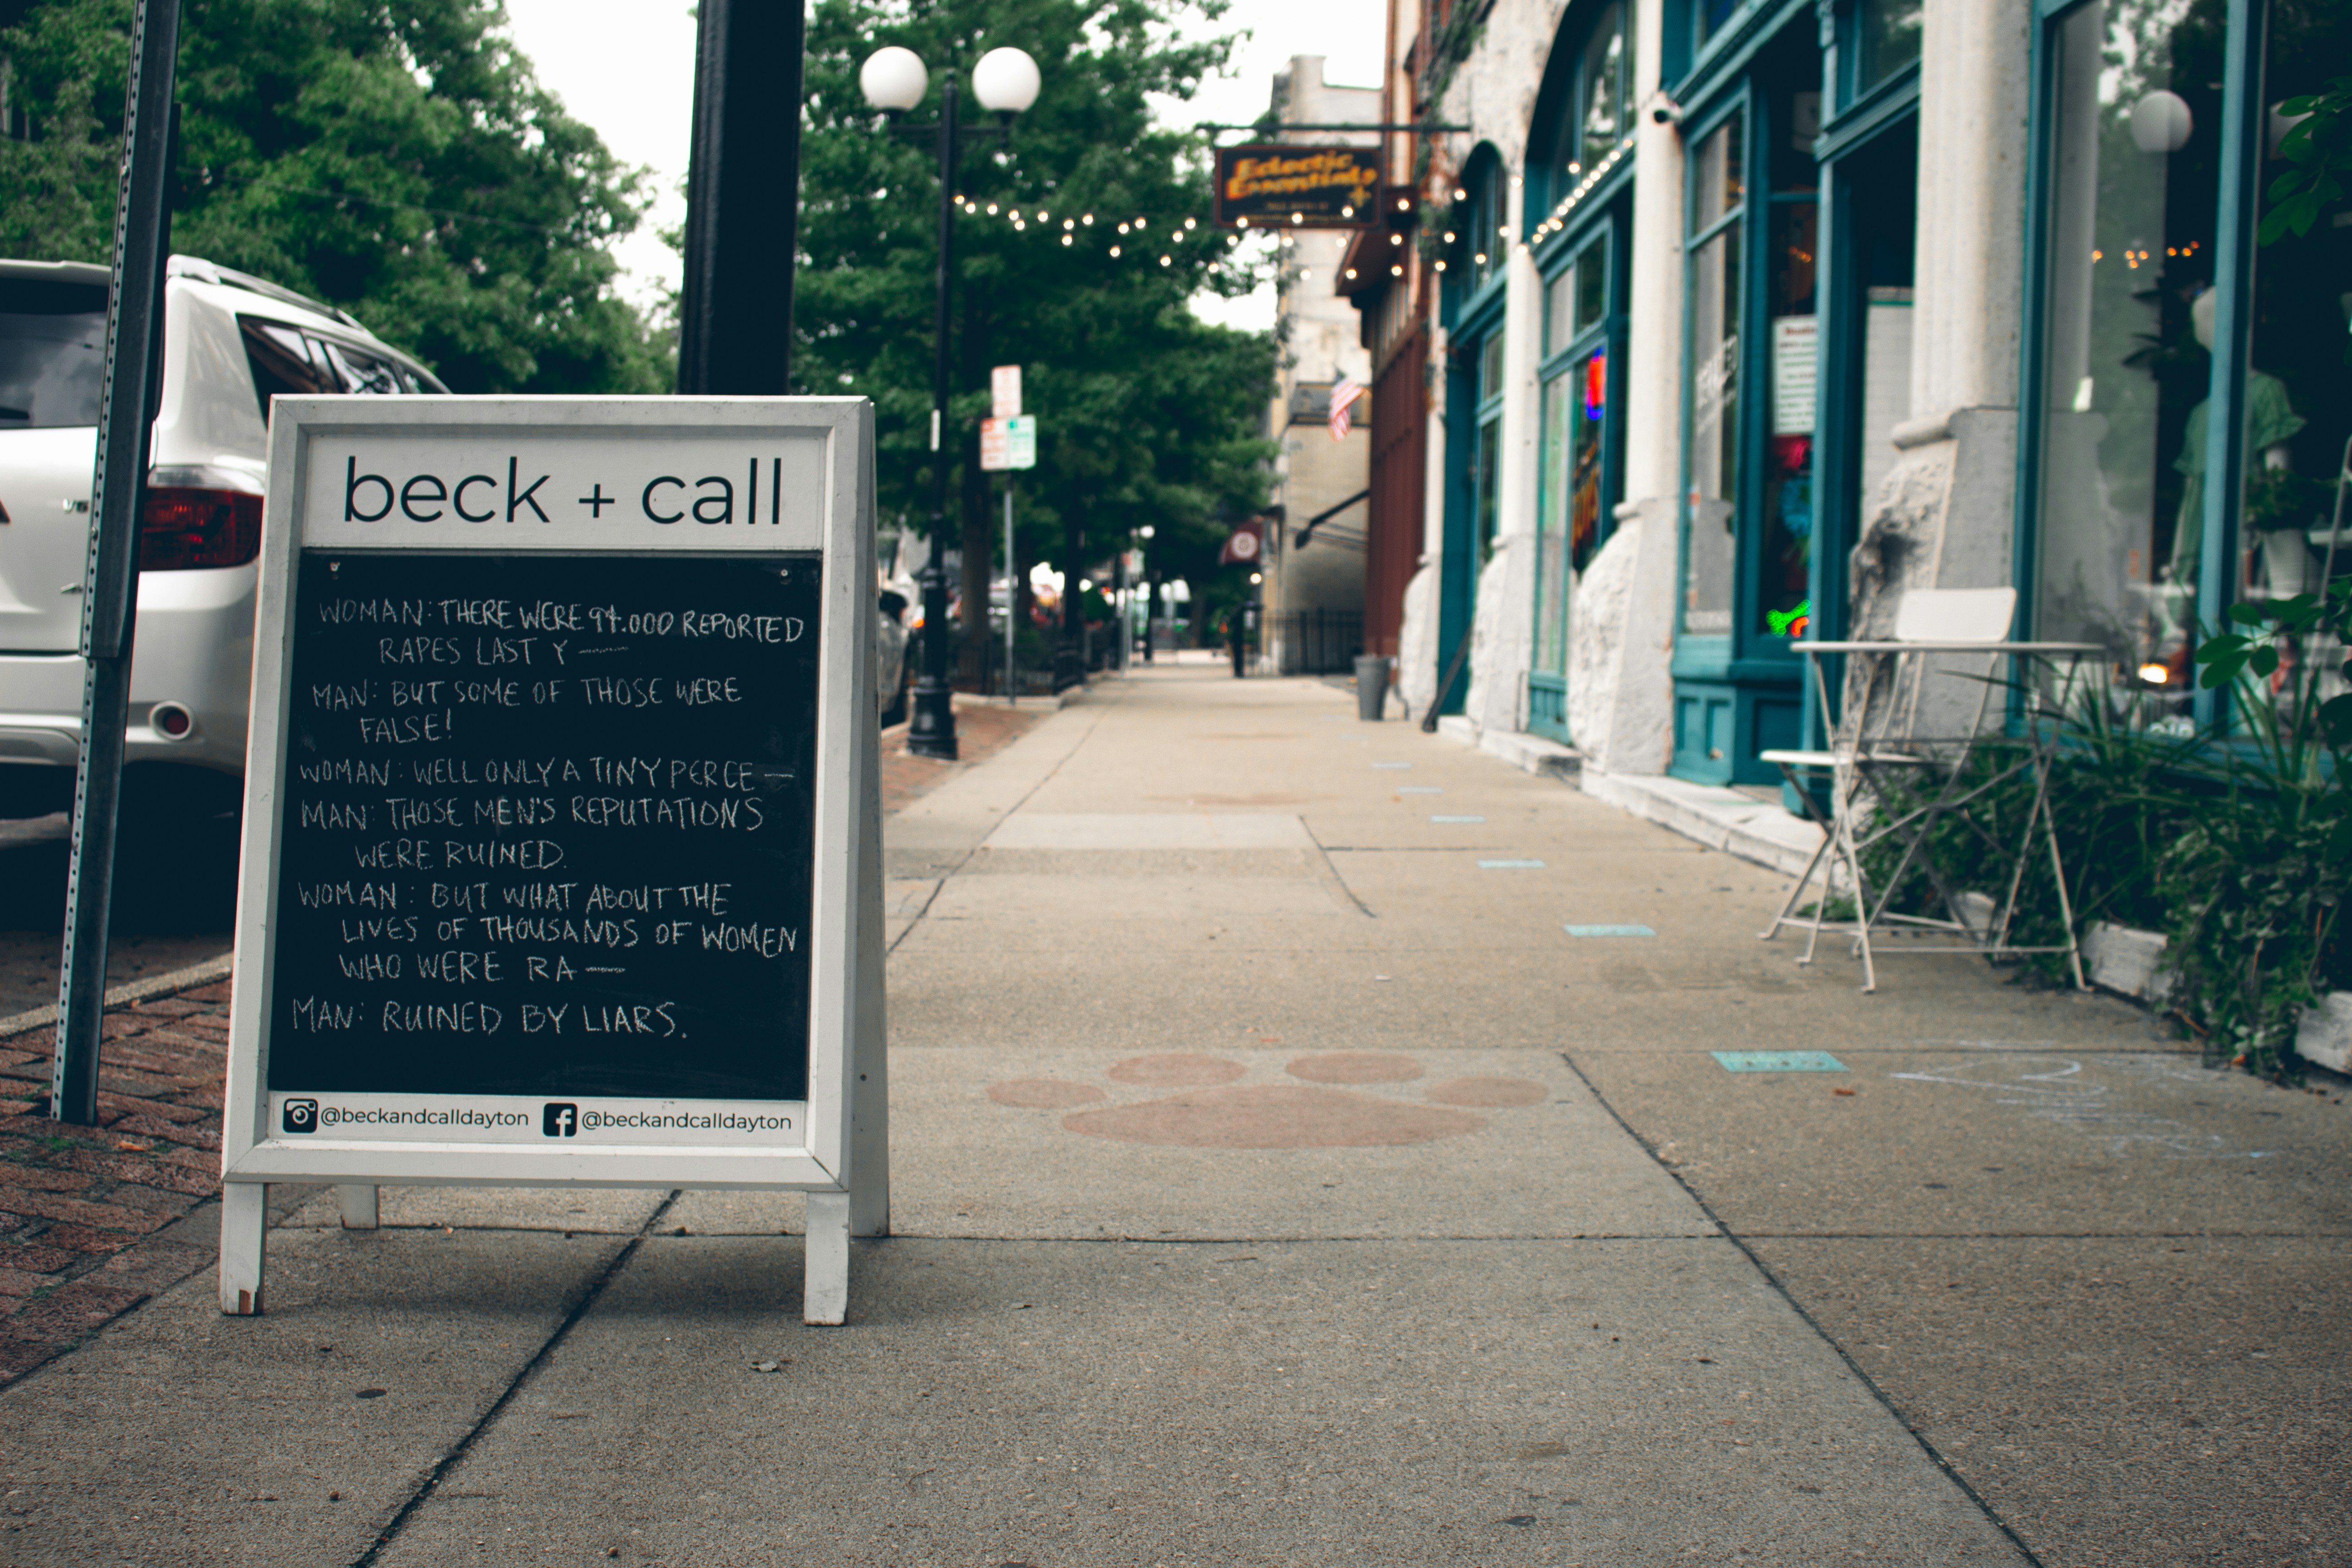 Eclectic
Essentials
beck + call
WOMAN: THERE WERE 94.000 REPORTED
RAPES LAST Y—
MAN: BUT SOME OF THOSE WERE
FALSE!
WOMAN: WELL ONLY A TINY PERCE—
MAN: THOSE MEN'S REPUTATIONS
WERE RUINED.
WOMAN: BUT WHAT ABOUT THE
LIVES OF THOUSANDS OF WOMEN
WHO WERE RA—
MAN: RUINED BY LIARS.
@beckandcalldayton @beckandcalldayton